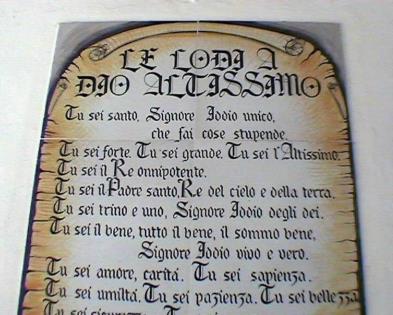 LE LODI A
DIO ALTISSIMO
Tu sei santo, Signore Iddio unico,
che fai cose stupende.
Tu sei forte. Tu sei grande. Tu sei l'Altissimo.
Tu sei il Re onnipotente.
Tu sei il Padre santo, Re del cielo e della terra.
Tu sei trino e uno, Signore Iddio degli dei.
Tu sei il bene, tutto il bene, il sommo bene,
Signore Iddio vivo e vero.
Tu sei amore, carità. Tu sei sapienza.
Tu sei umiltà. Tu sei pazienza. Tu sei bellezza.
Tu sei